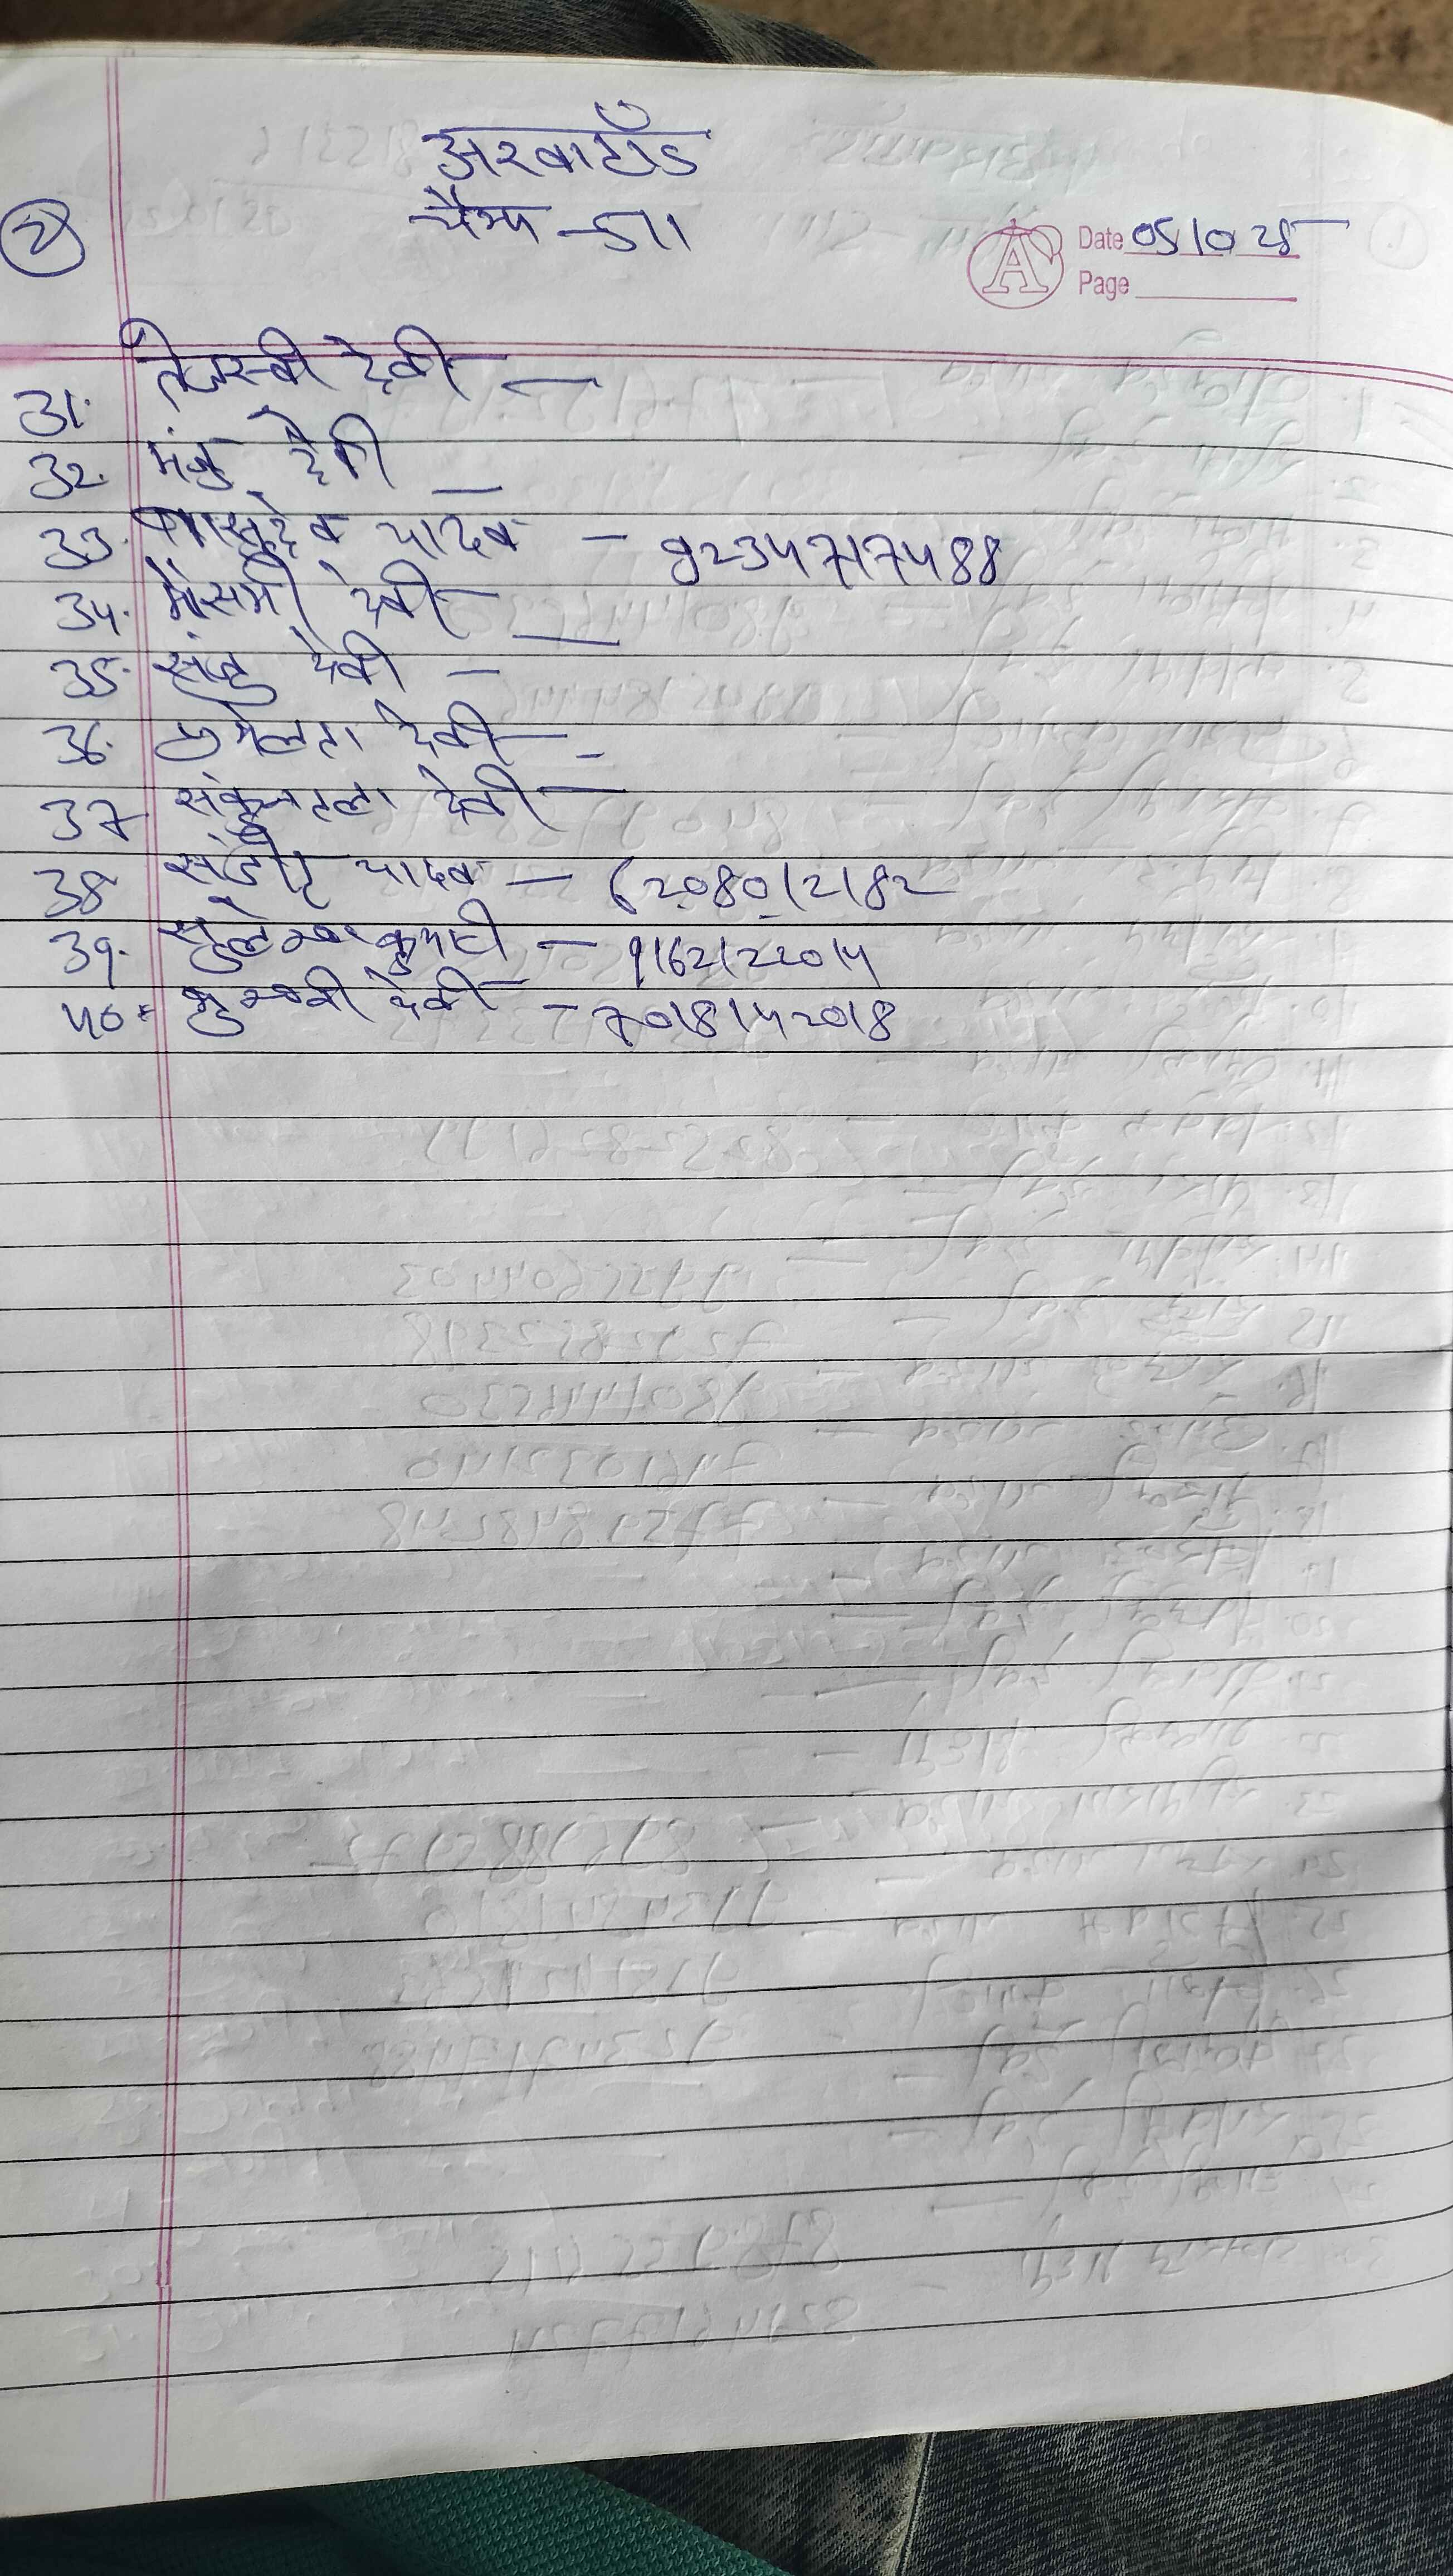 अरवाटाँड
चैम्प - 511
2
Date 05/10 25
Page
31. तेजस्वी देवी —
32. मंजु देवी —
33. वासुदेव यादव — 9234717488
34. मौसमी देवी —
35. संजु देवी —
36. देवी —
37 संकुन्तला देवी —
38 यादव — 6208012182
39. कुमारी — 9162122014
40. देवी — 7018142018